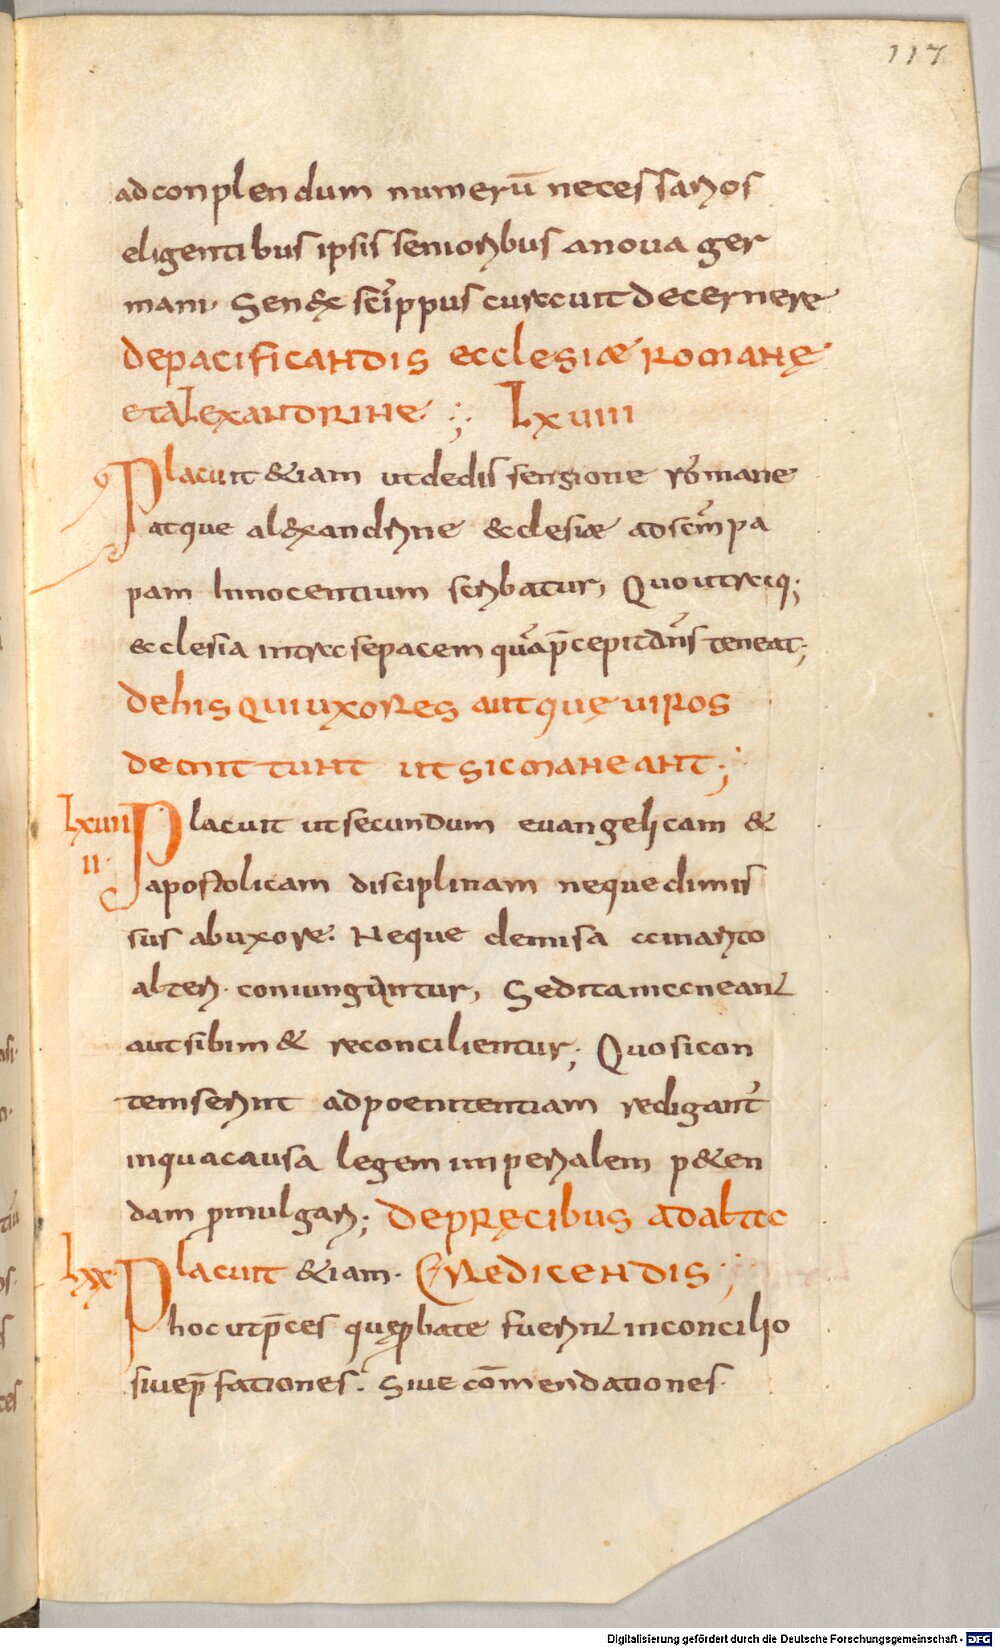 117
adconplendum numerū necessarios
eligentibus ipsis senioribus anoua ger
mani· Senex scīippus curecuit decernere
depacificandis ecclesiæ romanę
et alexandrine ·; Lxviii
Placuit &iam ut dedissensione romane
atque al&xandrine &cclesiæ ad scm̄ pa
pam Innocentium scribatur, Quo utreq·;
ecclesia intrasepacem quā p̄cepit dn̄s teneat·;
dehis qui uxores aut quę uiros
demittunt ut sic maneant·;
Lxviiii Placuit ut secundum euangelicam &
ii· apostolicam disciplinam neque dimis
sus abuxore· Neque demisa amarito
alteri· coniunguntur, Sed ita maneant
aut sibim& reconcilientur·; Quo si con
temserint ad poenitentiam redigant̄
inqua causa legem imperialem p&en
dam promulgari·; depręcibus ad altec
Lxx· Placuit &iam· e redicendis·;
hoc ut p̄ces quę probate fuerint inconcilio
siue p̄fationes· Siue com̄endationes
Digitalisierung gefördert durch die Deutsche Forschungsgemeinschaft - DFG